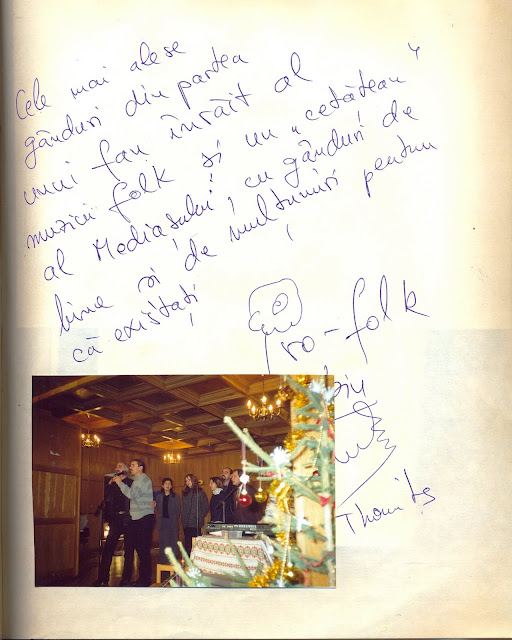 Cele mai alese
gânduri din partea
unui fan înrăit al
muzicii folk și un „cetățean”
al Mediașului, cu gânduri de
bine și de mulțumiri pentru
că existați
Pro-folk